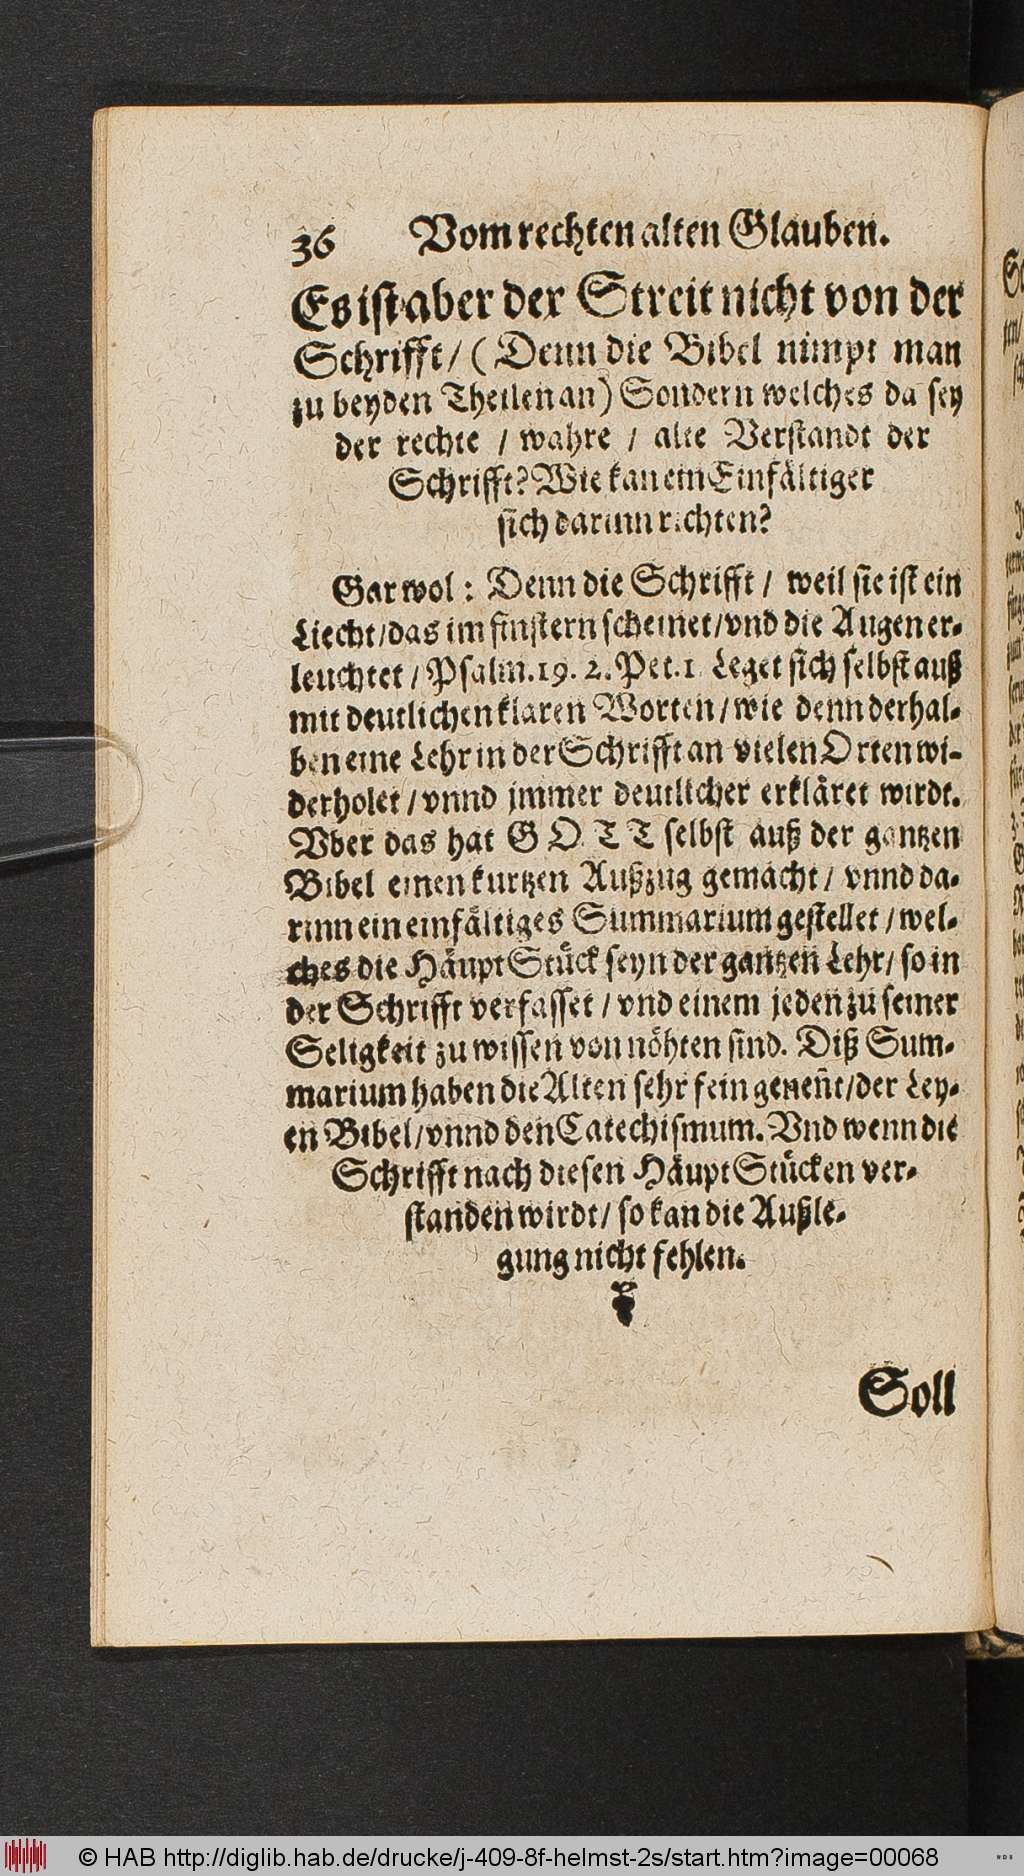 36 Vom rechten alten Glauben.
Es ist aber der Streit nicht von der
Schrifft / (Denn die Bibel nimpt man
zu beyden Theilen an) Sondern welches da sey
der rechte / wahre / alte Verstandt der
Schrifft? Wie kan ein Einfältiger
sich darum richten?
Gar wol: Denn die Schrifft / weil sie ist ein
Liecht / das im finstern scheinet / vnd die Augen er-
leuchtet / Psalm. 19. 2. Pet. 1 Leget sich selbst auß
mit deutlichen klaren Worten / wie denn derhal-
ben eine Lehr in der Schrifft an vielen Orten wi-
derholet / vnnd jmmer deutlicher erkläret wirdt.
Vber das hat GOTT selbst auß der gantzen
Bibel einen kurtzen Außzug gemacht / vnnd da-
rinn ein einfältiges Summarium gestellet / wel-
ches die Häupt Stück seyn der gantzen Lehr / so in
der Schrifft verfasset / vnd einem jeden zu seiner
Seligkeit zu wissen von nöhten sind. Diß Sum-
marium haben die Alten sehr fein geneñt / der Ley-
en Bibel / vnnd den Catechismum. Vnd wenn die
Schrifft nach diesen Häupt Stücken ver-
standen wirdt / so kan die Außle-
gung nicht fehlen.
Soll
© HAB http://diglib.hab.de/drucke/j-409-8f-helmst-2s/start.htm?image=00068